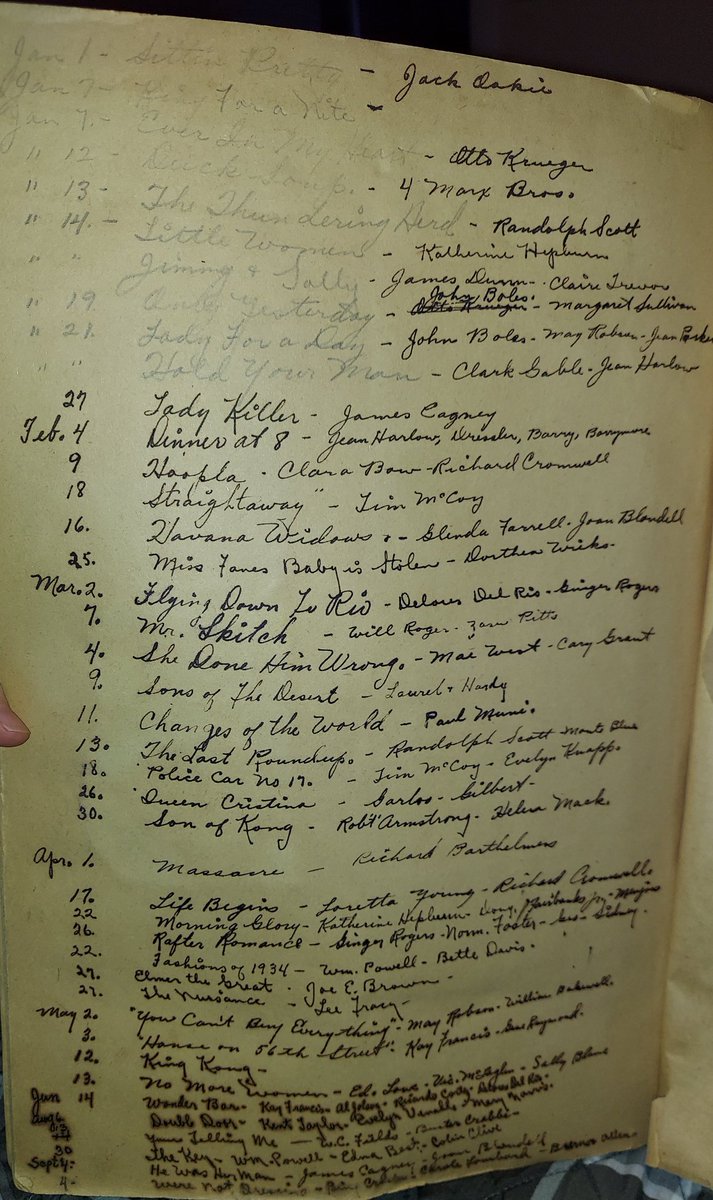 Jan 1 - Sittin Pretty - Jack Oakie
Jan 7 - For a Nite -
Jan 7. - Ever In My Heart - Otto Krueger
" 12 - Duck Soup. - 4 Marx Bros.
" 13 - The Thundering Herd - Randolph Scott
" 14. - Little Women - Katherine Hepburn
" " Jimmy & Sally - James Dunn - Claire Trevor
" 19 Only Yesterday - Otto Krueger John Boles. - Margaret Sullivan
" 21. Lady For a Day - John Boles - May Robson - Jean Parker
" " Hold Your Man - Clark Gable - Jean Harlow
27 Lady Killer - James Cagney
Feb. 4 Dinner at 8 - Jean Harlow, Dressler, Barry, Barrymore
9 Hoopla - Clara Bow - Richard Cromwell
18 Straightaway" - Tim McCoy
16. Havana Widows - Glenda Farrell - Joan Blondell
25. Miss Fanes Baby is Stolen - Dorthea Wieks.
Mar. 2. Flying Down To Rio - Delores Del Rio - Ginger Rogers
7. Mr. Skitch - Will Roger - Zasu Pitts
4. She Done Him Wrong. - Mae West - Cary Grant
9. Sons of The Desert - Laurel & Hardy
11. Changes of the World - Paul Muni.
13. The Last Roundup. - Randolph Scott Monte Blue
18. Police Car No 17. - Tim McCoy - Evelyn Knapp.
26. Queen Cristina - Garbos - Gilbert -
30. Son of Kong - Robt Armstrong - Helen Mack.
Apr. 1. Massacre - Richard Barthelmess
17. Life Begins - Loretta Young - Richard Cromwell.
22 Morning Glory - Katherine Hepburn - Doug. Fairbanks jr. - Menjou
26. Rafter Romance - Ginger Rogers - Norm. Foster - Geo - Sidney.
22. Fashions of 1934 - Wm. Powell - Bette Davis.
27. Elmer the Great - Joe E. Brown -
27. The Nuisance - Lee Tracy -
May 2. "You Can't Buy Everything" - May Robson - William Bakewell.
3. "House on 56th Street" - Kay Francis - Gene Raymond.
12. King Kong -
13. No More Women - Ed. Lowe - Vic. McLaglen - Sally Blane
Jun 14 Wonder Bar - Kay Francis - Al Jolson - Ricardo Cortez - Delores Del Rio -
Aug 6 Double Door - Kent Taylor - Evelyn Venable - Mary Morris.
Youre Telling Me - W.C. Fields - Buster Crabbe -
30 The Key - Wm. Powell - Edna Best - Colin Clive
Sept 4 - He Was Her Man - James Cagney - Joan Blondell
4 - Were Not Dressing - Bing Crosby - Carole Lombard - Burns Allen